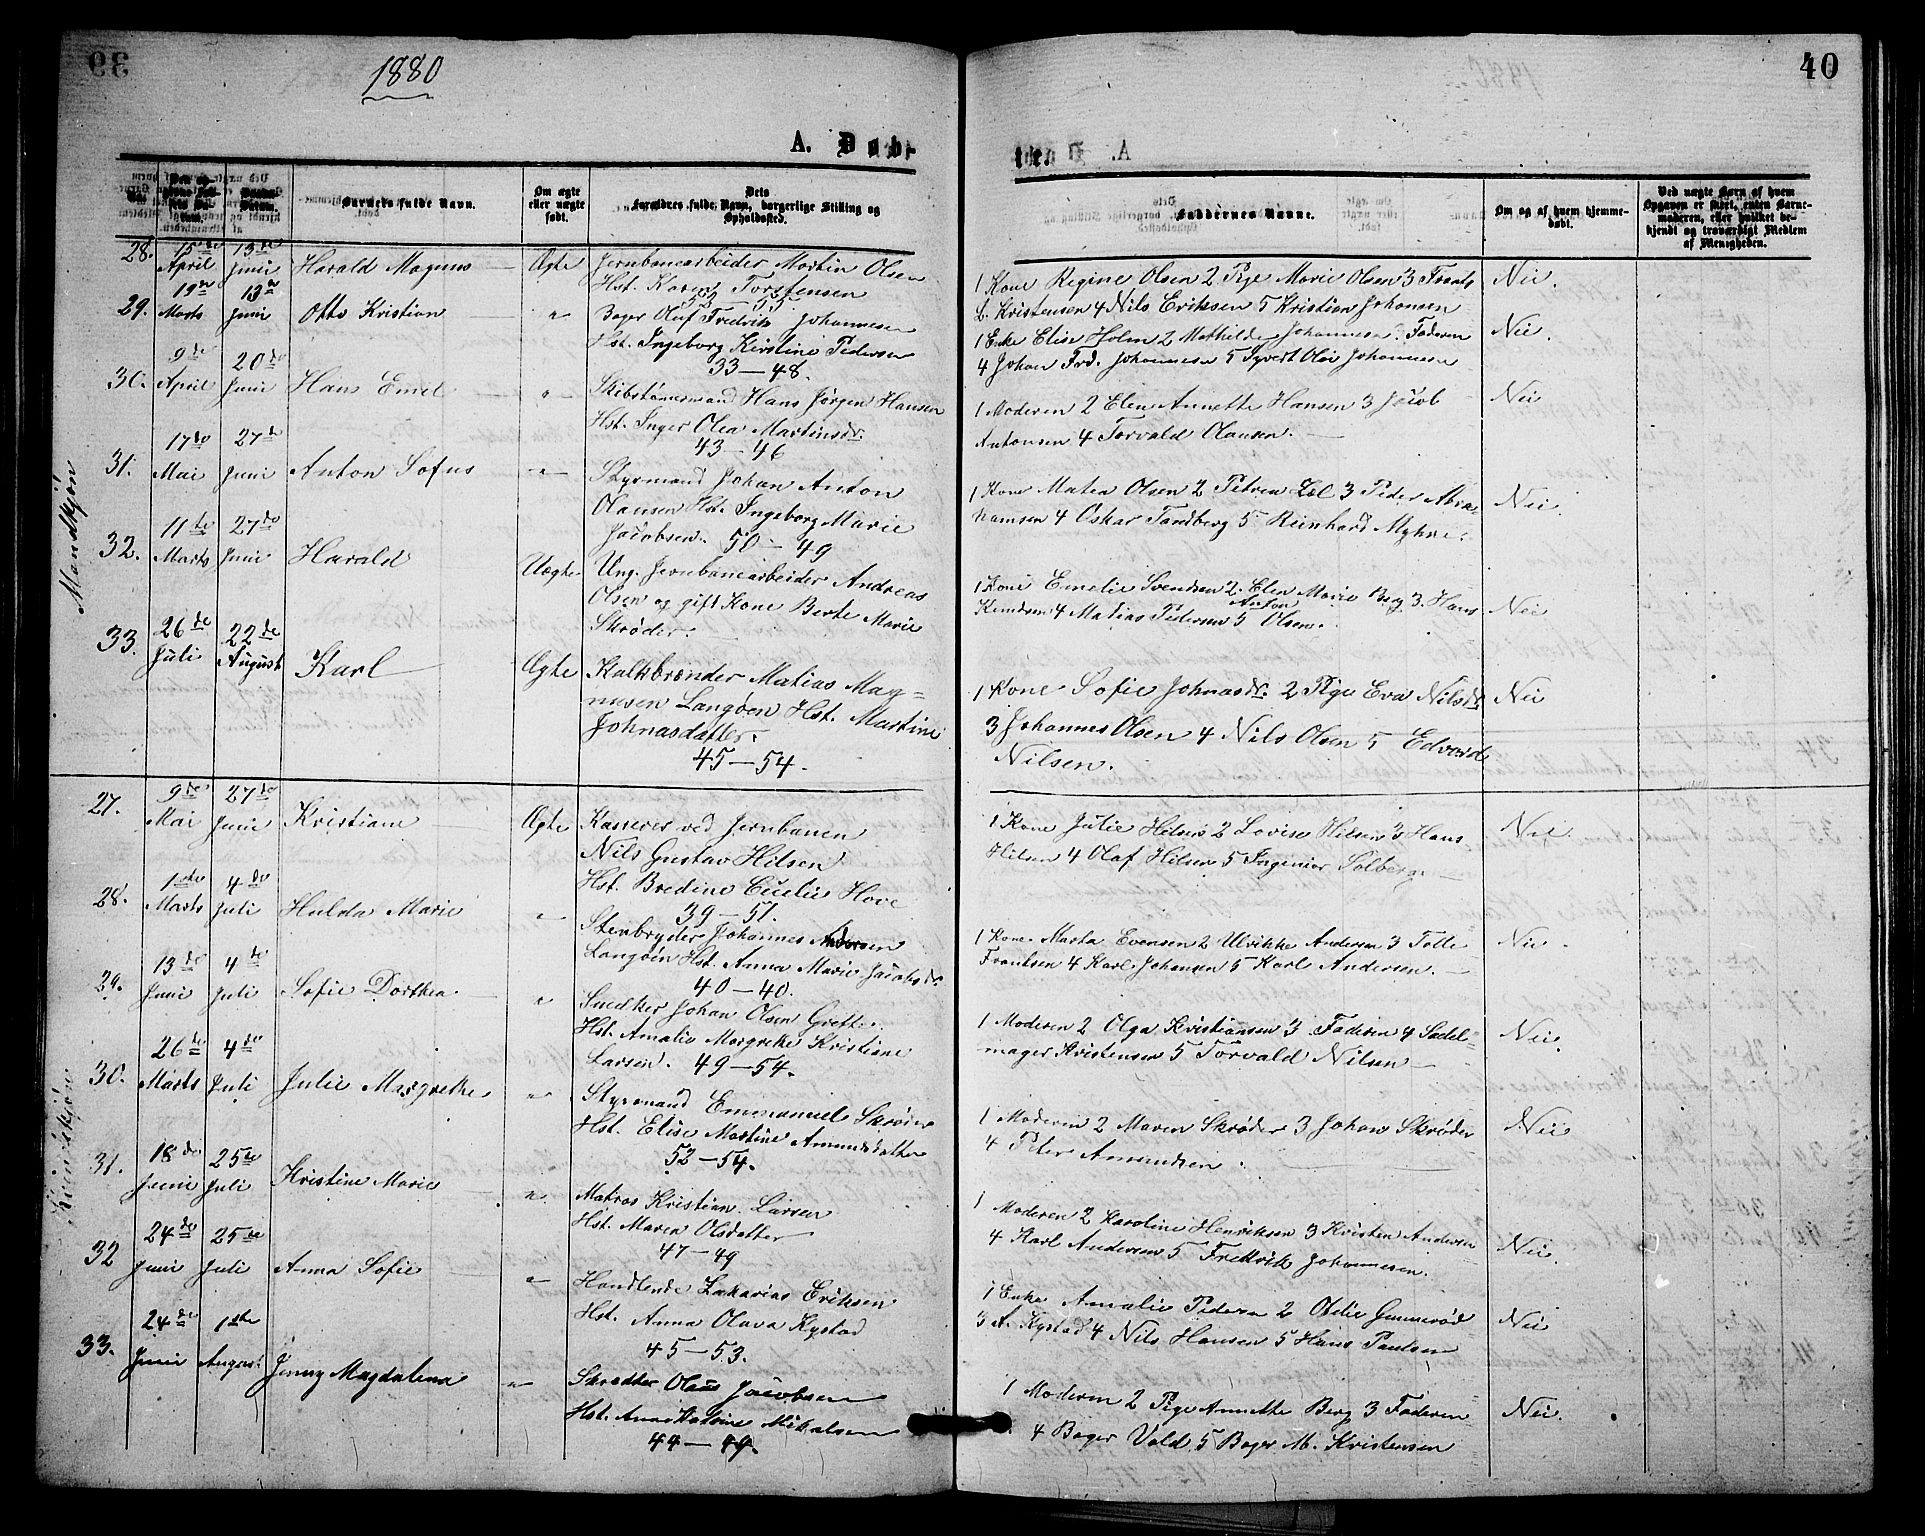 1880
40
A. Døb-
te.
Barnets fulde Navn.
Om ægte eller uægte født.
Dets Forældres fulde Navn, borgerlige Stilling og Opholdssted.
Faddernes Navne.
Om og af hvem hjemmedøbt.
Ved uægte Børn af hvem Opgaven er skeet, enten Barnemoderen, eller hvilket bekjendt og troværdigt Medlem af Menigheden.
Mandkjøn
28. 15de April 13de Juni Harald Magnus Ægte Jernbanearbeider Martin Olsen
Hst. Karen Torstensen
53 – 55
1 Kone Regine Olsen 2 Pige Marie Olsen 3 Frants
L. Kristensen 4 Nils Eriksen 5 Kristian Johansen
Nei.
29. 19de Marts 13de Juni Otto Kristian " Bager Oluf Fredrik Johannesen
Hst. Ingeborg Kirstine Pedersen
33 – 48.
1 Enke Elise Holm 2 Mathilde Johannesen 3 Faderen
4 Johan Frd. Johannesen 5 Syvert Olai Johannesen
Nei.
30. 9de April 20de Juni Hans Emil " Skibstømermand Hans Jørgen Hansen
Hst. Inger Olea Martinsdr.
43 – 46
1 Moderen 2 Elen Annette Hansen 3 Jacob
Antonsen 4 Torvald Olausen.
Nei
31. 17de Mai 27de Juni Anton Sofus " Styrmand Johan Anton
Olausen Hst. Ingeborg Marie
Jacobsen. 50 – 49
1 Kone Matea Olsen 2 Petrea 3 Peder Abra-
hamsen 4 Oskar Tandberg 5 Reinhard Myhre.
Nei
32. 11te Marts 27de Juni Harald Uægte Ung. Jernbanearbeider Andreas
Olsen og gift Kone Berte Marie
Skrøder.
1 Kone Emelie Svendsen 2. Elen Marie Berg 3. Hans
Knudsen 4 Matias Pedersen 5 Anton Olsen.
Nei
33. 26de Juli 22de August Karl Ægte Kalkbrænder Matias Mag-
nusen Langøen Hst. Martine
Johnasdatter.
45 – 54.
1 Kone Sofie Johnasdr. 2 Pige Eva Nilsdr
3 Johannes Olsen 4 Nils Olsen 5 Edvard
Nilsen.
Nei
Kvindekjøn
27. 9de Mai 27de Juni Kristiane Ægte Kasserer ved Jernbanen
Nils Gustav Hilsen
Hst. Bredine Cecilie Hove
39 – 51.
1 Kone Julie Hilsen 2 Lovise Hilsen 3 Hans
Hilsen 4 Olaf Hilsen 5 Ingeniør Solberg.
Nei.
28. 1ste Marts 4de Juli Hulda Marie " Stenbryder Johannes Andersen
Langøen Hst. Anna Marie Jacobsdr.
40 – 40.
1 Kone Marta Evensen 2 Ulrikke Andersen 3 Tolle
Frantsen 4 Karl Johansen 5 Karl Andersen.
Nei.
29. 13de Juni 4de Juli Sofie Dorthea " Snedker Johan Olsen Grette.
Hst. Amalie Margrete Kristiane
Larsen. 49 – 54.
1 Moderen 2 Olga Kristiansen 3 Faderen 4 Sadel-
mager Kristensen 5 Torvald Nilsen
Nei.
30. 26de Marts 4de Juli Julie Margrethe " Styrmand Emmanuel Skrøder
Hst. Elise Martine Amundsdatter
52 – 54.
1 Moderen 2 Maren Skrøder 3 Johan Skrøder
4 Peter Amundsen.
Nei
31. 18de Juni 25de Juli Kristine Marie " Matros Kristian Larsen
Hst. Maren Olsdatter
47 – 49
1 Moderen 2 Karoline Henriksen 3 Kristen Andersen
4 Karl Andersen 5 Fredrik Johannesen.
Nei.
32 24de Juni 25de Juli Anna Sofie " Handlende Zakarias Eriksen
Hst. Anna Olava Kystad
45 – 53.
1 Enke Amalie Pedersen 2 Otelie Gunnerød
3 A. Kystad 4 Nils Hansen 5 Hans Paulsen
Nei
33. 24de Juni 1ste August Jenny Magdalena " Skrædder Olaus Jacobsen
Hst. Anne Katrine Mikalsen
44 – 49.
1 Moderen 2 Pige Annette Berg 3 Faderen
4 Bager Vold 5 Bager M. Kristensen
Nei.